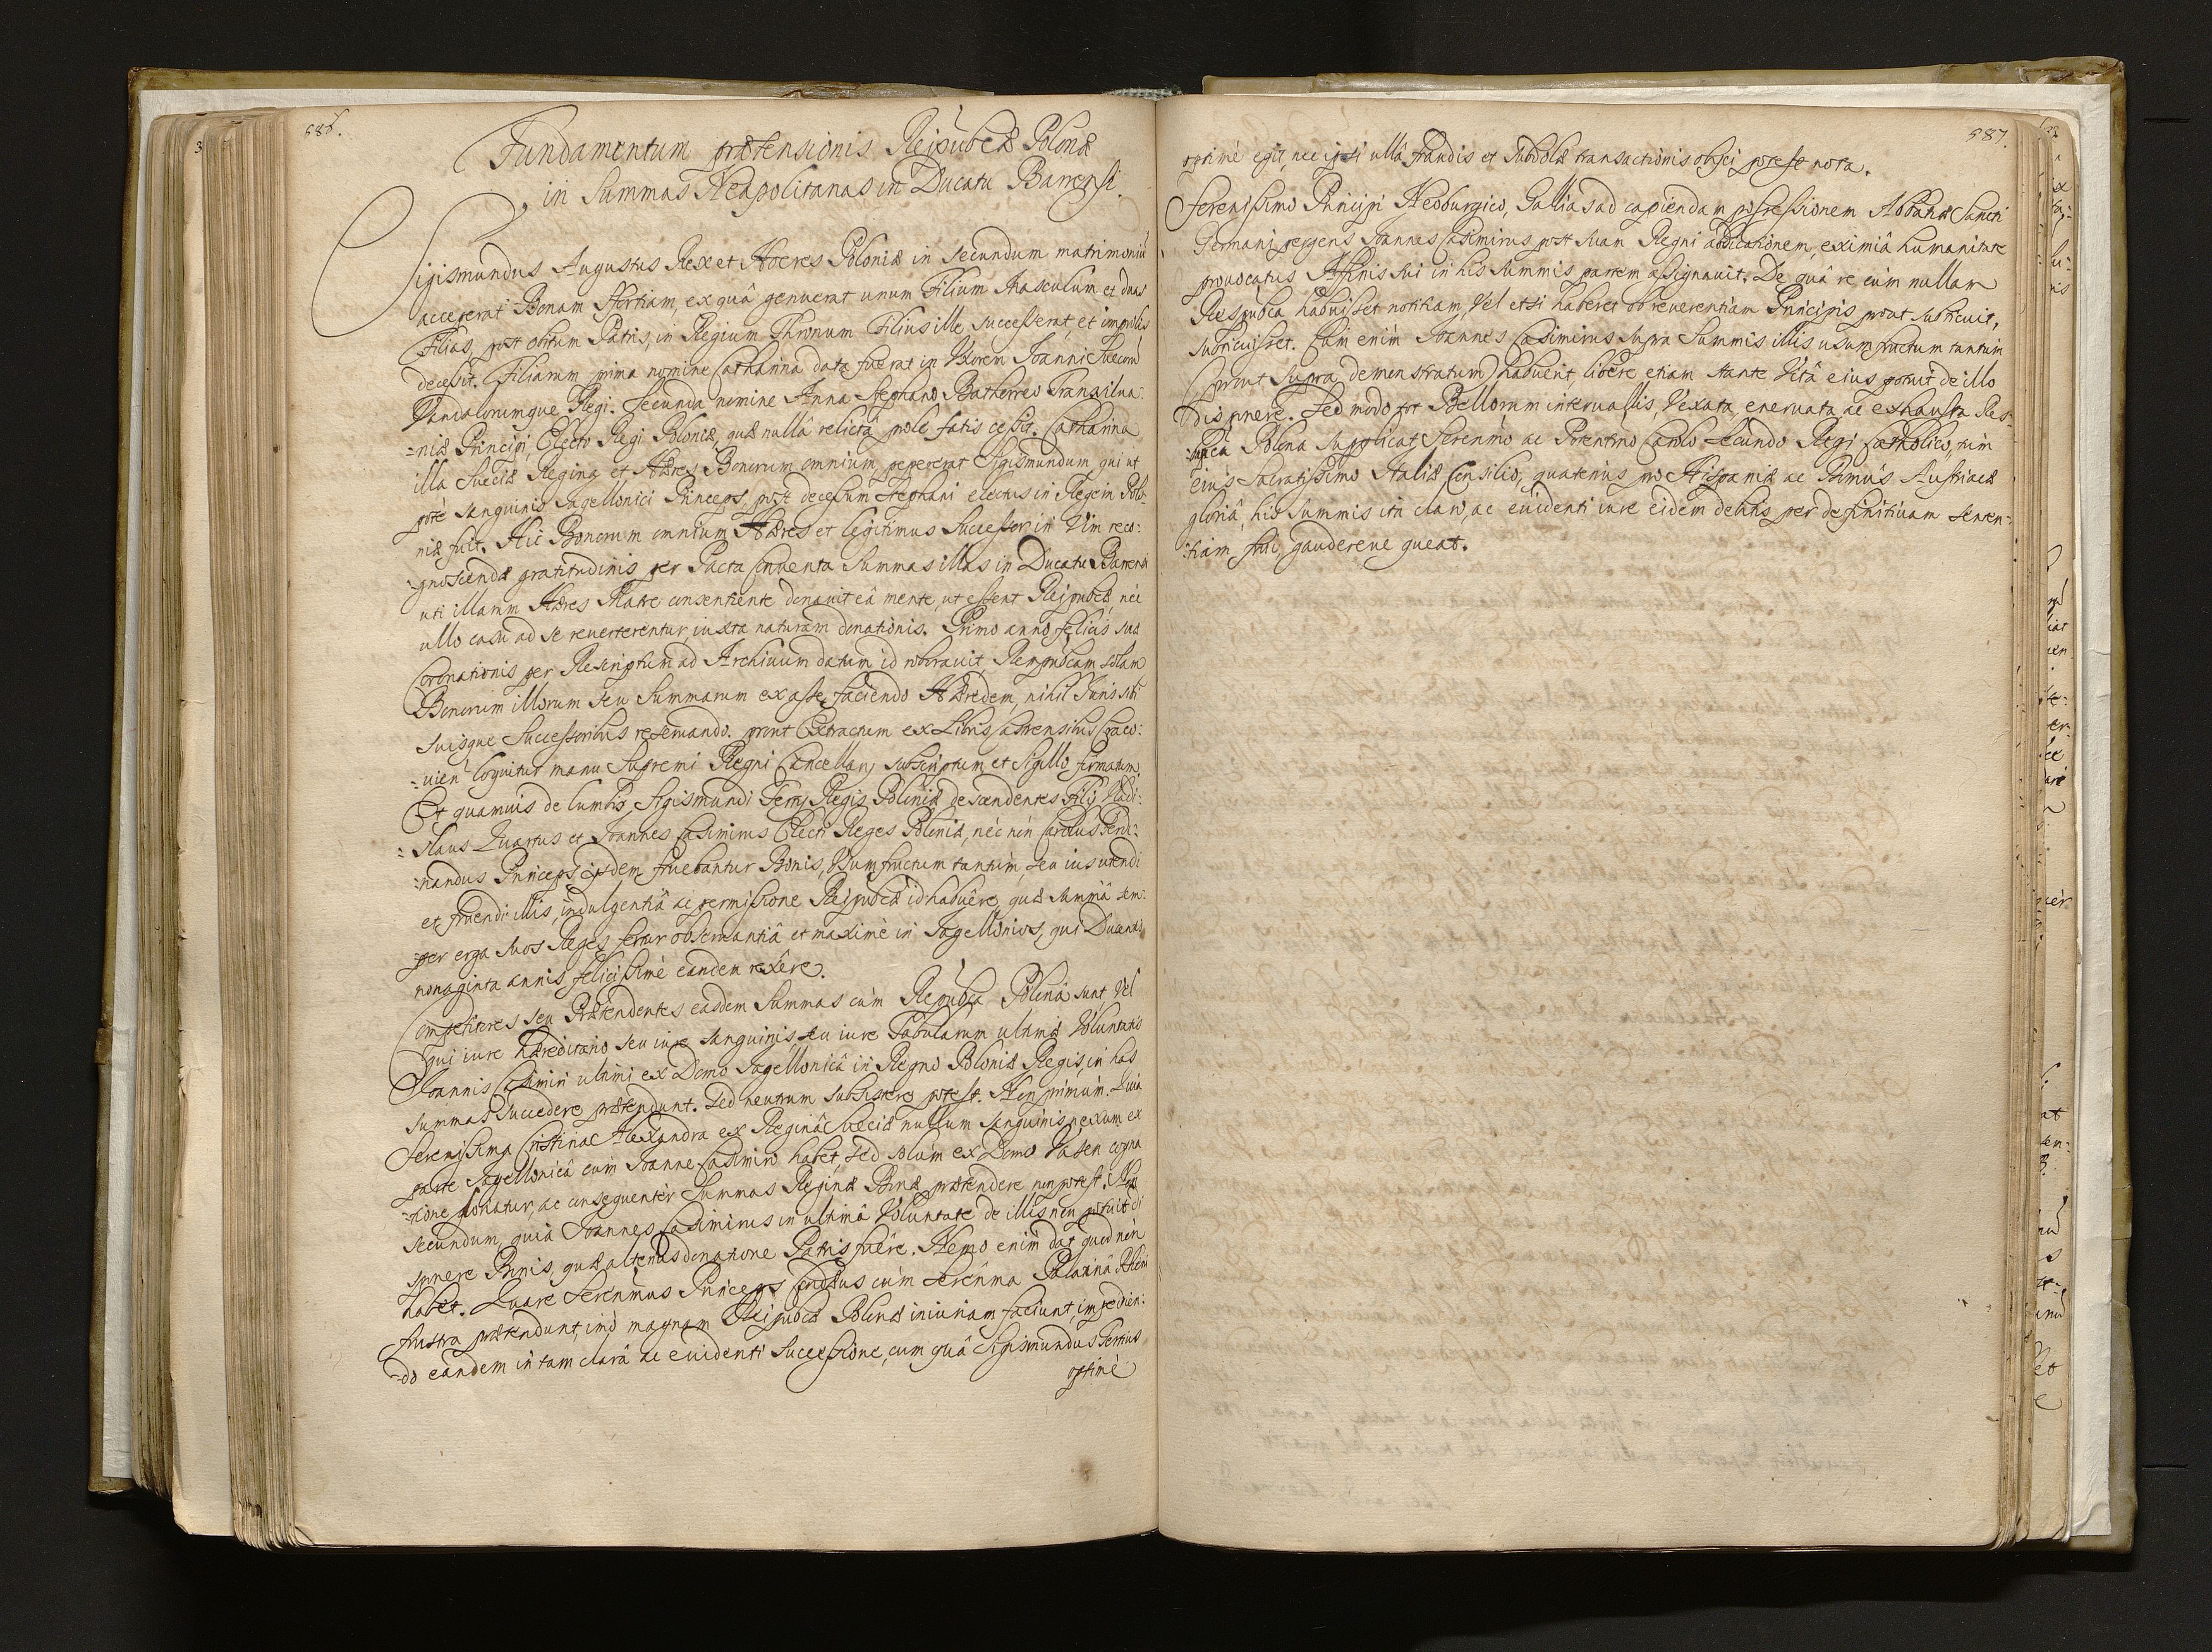 586.
Fundamentum prætensionis Reipublcæ Polonæ
in Summas Neapolitanas in Ducatu Barrensi.
Sigismundus Augustus Rex et Hæres Poloniæ in secundum matrimoniũ
acceperat Bonam Sfortiam, ex quâ genuerat unum Filium Masculum et duas
Filias, post obitum Patris, in Regium Thronum Filius ille successerat, et improlis
decessit. Filiarum prima nomine Catharina data fuerat in Uxorem Joanni Suecorũ
Vandalorumque Regi. Secunda nomine Anna Stephano Bathorreo Transilua:
:niæ Principi, Electo Regi Poloniæ, quæ nullâ relictâ prole fatis cessit. Catharina
illa Sueciæ Regina et Hæres Bonorum omnium, pepererat Sigismundum, qui ut
pote Sanguinis Jagellonici Princeps, post decessum Stephani electus in Regem Polo:
niæ fuit. Hic Bonorum omnium Hæres et legitimus Successor in Vim reco:
:gnoscendæ gratitudinis per Pacta Conuenta Summas illas in Ducatu Barrensi
uti illarum Hæres Matre consentiente donauit eâ mente, ut essent Reipublcæ, nèc
ullo casu ad se reuerterentur, iuxta naturam donationis. Primo anno felicis suæ
Coronationis per Rescriptum ad Archiuum datum id roborauit, Rempublcam solam
Bonorum illorum seu Summarum ex asse faciendo Hæredem, nihil Juris sibi
suisque Successoribus reseruando. prout Extractum ex Libris Castrensibus Craco:
:uien loquitur manu Supremi Regni Cancellarij subscriptum et Sigillo firmatum.
Et quamuis de lumbis Sigismundi Tertij Regis Poloniæ descendentes Filij Vladi:
:slaus Quartus et Joannes Casimirus Electi Reges Poloniæ, nèc nòn Carolus Ferdi:
:nandus Princeps ijsdem fruebantur Bonis, Usumfructum tantùm, seu ius utendi
et fruendi illis, indulgentiâ ac permissione Reipublcæ id habuêre, quæ summâ sem:
:per erga suos Reges fertur obseruantiâ et maximè in Jagellonios, qui Ducentis
nonaginta annis felicissimè eandem rexêre.
Competitores seu Prætendentes easdem Summas cùm Republca Polonâ sunt, Vel
qui iure hæreditario seu iure sanguinis, seu iure Tabularum ultimæ Voluntatis
Joannis Casimiri ultimi ex Domo Jagellonicâ in Regno Poloniæ Regis, in has
summas succedere prætendunt. Sed neutrum subsistere potest. Non primùm. Quia
Serenissima Cristina Alexandra ex Reginâ Sueciæ nullum sanguinis nexum ex
parte Jagellonicâ cum Joanne Casimiro habet sed solùm ex Domo Vasen cogna
:tione gloriatur, ac consequentèr Summas Reginæ Bonæ prætendere non potest. Non
secundum, quià Joannes Casimirus in ultimâ Voluntate de illis non potuit di
sponere Bonis, quæ alterius donatione Patris fuêre. Nemo enim dat quod nòn
habet. Quare Serenmus Princeps Condæus cùm Serenma Palatinâ Rheni
frustra prætendunt, imò magnam Reipublcæ Polonæ iniuriam faciunt, impedien:
:do eandem in tam clarâ ac euidenti Successione, cum quâ Sigismundus Tertius
optimè
587.
optimè egit, nec ipsi ulla fraudis et subdolæ transactionis obijci potest nota.
Serenissimo Principi Neoburgico, Gallias ad capiendam possessionem Abbatiæ Sancti
Germani pergens Joannes Casimirus post suam Regni abdicationem, eximiâ humanitate
prouocatus Affinis sui in his summis partem assignauit. De quâ re cùm nullam
Respublca habuisset notitiam, Vel etsi haberet ob reuerentiam Principis prout subticuit,
subticuisset. Cùm enim Joannes Casimirus supra Summis illis usumfructum tantùm
(prout supra demonstratum) habuerit, liberè etiam stante Vitâ eius potuit de illo
disponere. Sed modo tot Bellorum interuallis, Vexata, eneruata, ac exhausta Res:
:publca Polona supplicat Serenmo ac Potentmo Carolo Secundo Regi Catholico, tùm
eius Sacratissimo Italiæ Consilio, quatenùs pro Hispaniæ ac Domûs Austriacæ
gloriâ, his Summis ità claro, ac euidenti iure eidem debitis per definitiuam senten:
:tiam frui, gaudereue queat.